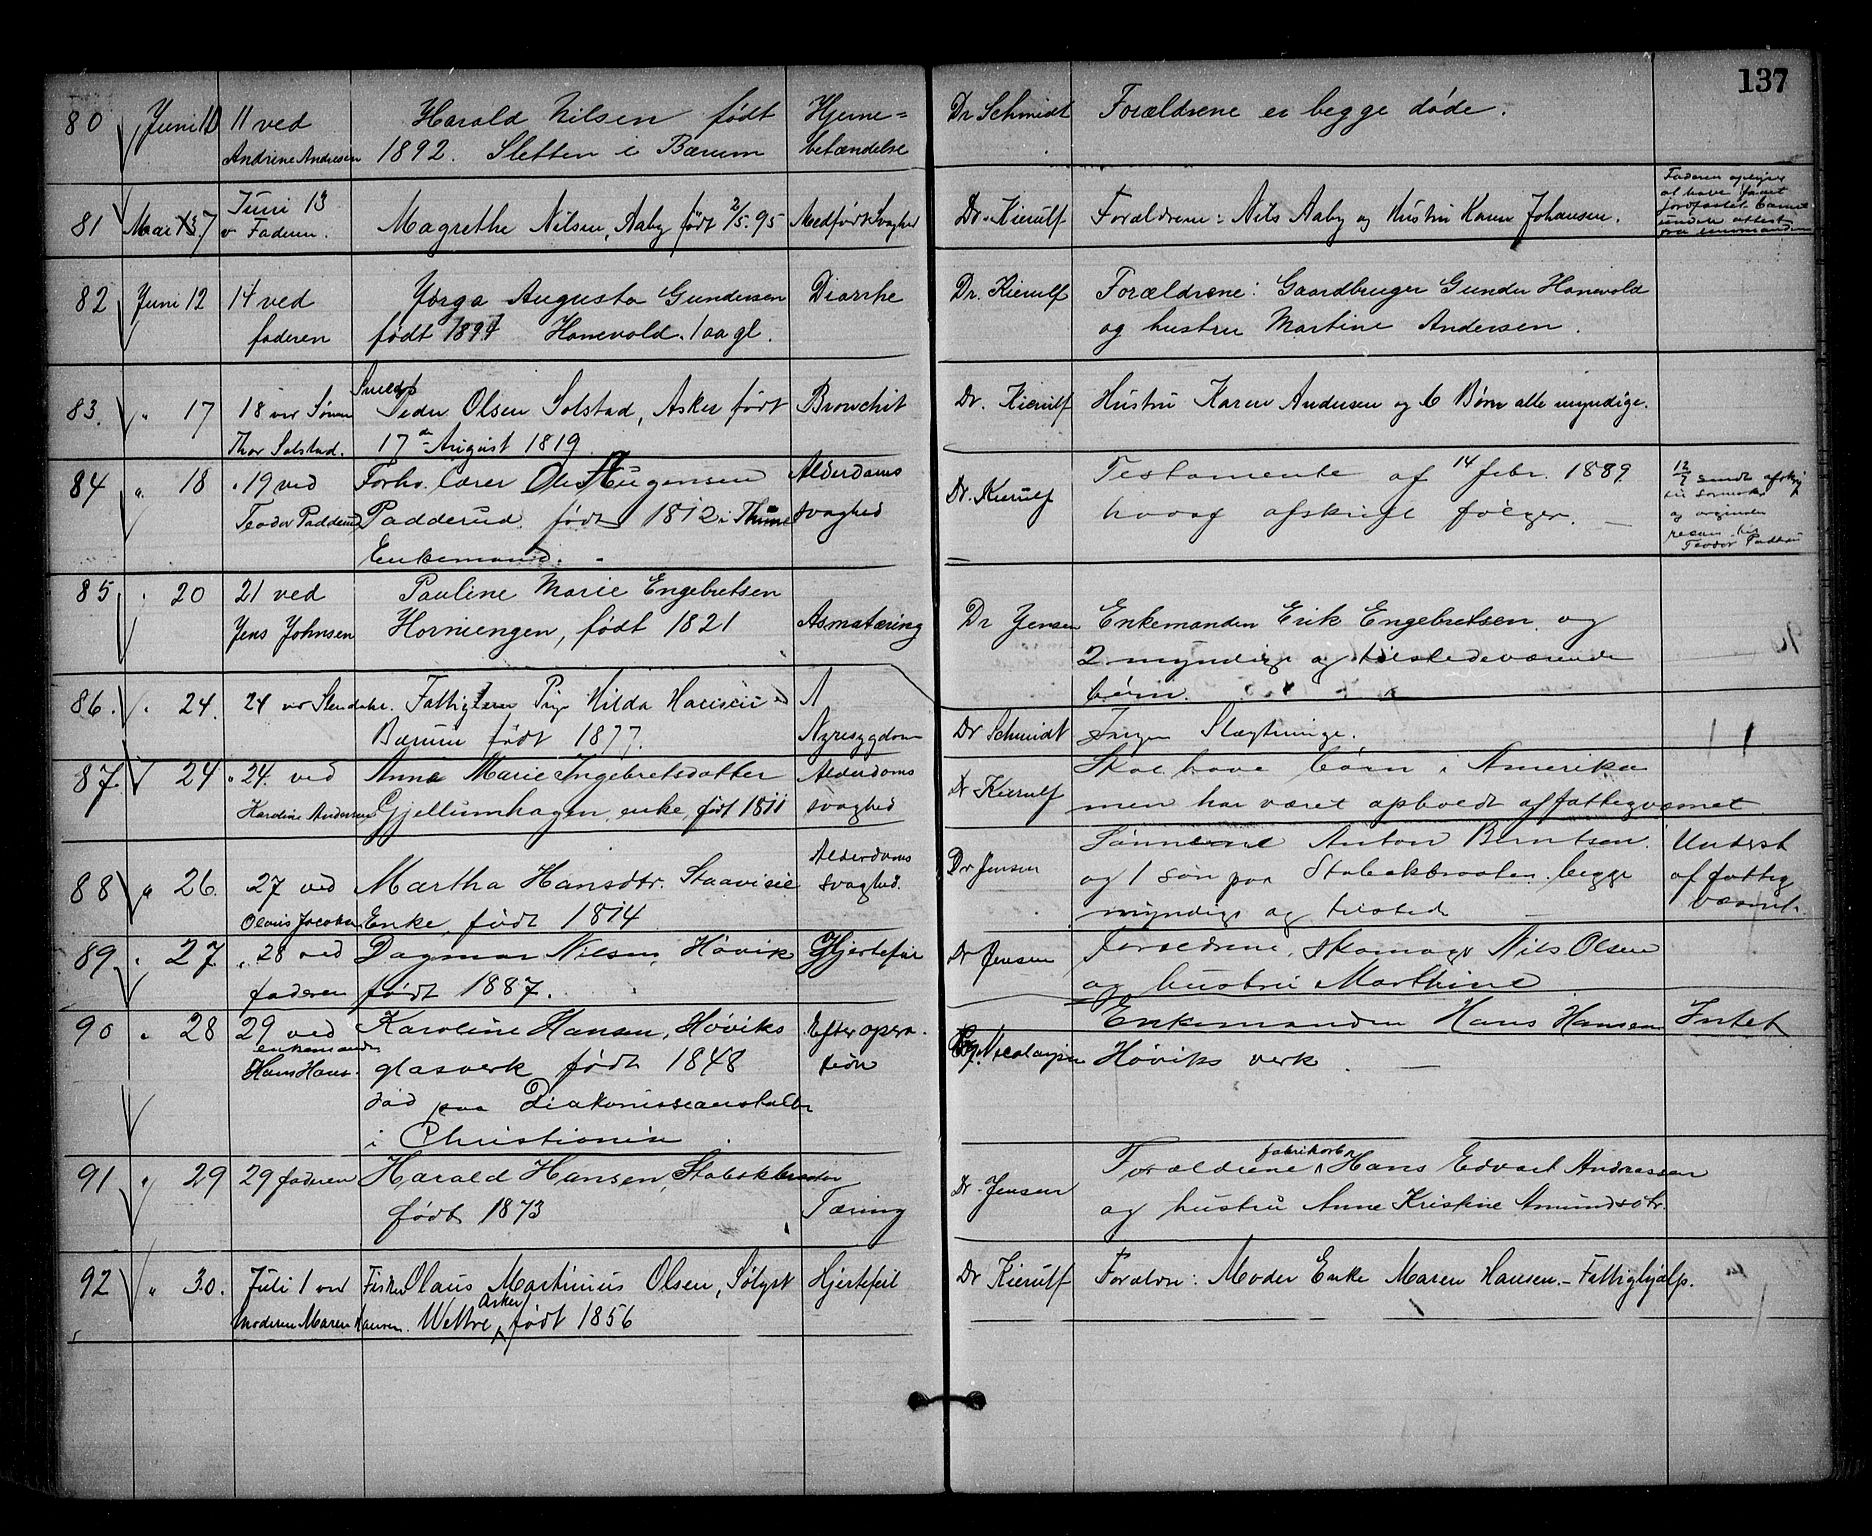 137
80 Juni 10 11 ved Harald Nilsen født Hjerne= Dr Schmidt Forældrene er begge døde.
Andrine Andresen 1892. Sletten i Bærum betændelse
81 Mai 7 Juni 13 Magrethe Nilsen, Aaby født 2/5.95 Medfødt Svaghed Dr. Kierulf Forældrene: Nils Aaby og Hustru Karen Johansen. Faderen oplyser
v Faderen. at have faaet
jordfæstet barnet
under attest
fra
82 Juni 12 14 ved Jørga Augusta Gundersen Diarrhe Dr. Kierulf Forældrene: Gaardbruger Gunder Hanevold
faderen født 1894 Hanevold. 1 aa gl. og hustru Martine Andersen.
83. " 17 18 ved Sønnen Peder Olsen Solstad, Asker født Bronchit Dr. Kierulf Hustru Karen Andersen og 6 Børn alle myndige.
Thor Solstad. 17de August 1819
84 " 18 " 19 ved Forhv. lærer Ole Haugensen Alderdoms Dr. Kierulf Testamente af 14 febr. 1889 12/7 sendt afskr
Teodor Padderud Padderud. født 1812 i svaghed hvoraf afskrift følger. —
Enkemand. og
Teodor Padderud
85 " 20 21 ved Pauline Marie Engebretsen
Jens Johnsen Horniengen, født 1821 Asmatæring Dr Jensen Enkemanden Erik Engebretsen og
2 myndige og tilstedeværende
børn.
86. " 24. 24 ved Fattiglem Pige Hilda Hansen
Bærum født 1877. Nyresygdom Dr Schmidt Ingen Slægtninge.
87. " 24 " 24. ved Anne Marie Ingebretsdatter Alderdoms Dr Kierulf Skal have børn i Amerika
Karoline Andersen Gjellumhagen, enke, født 1811 svaghed men har været opholdt af fattigvæsnet
88 " 26. 27 ved Martha Hansdtr. Staavivie Alderdoms svaghed. Dr Jensen Sønnerne Anton Berntsen. Underst
Olavis Jacobsen Enke, født 1814 og 1 søn paa Stabækbraaten begge af fattig
myndige og tilstede — væsnet.
89. " 27 " 28 ved Dagmar Nilsen, Høvik Hjertefeil Dr Jensen Forældrene, Skomager Nils Olsen
faderen født 1887. og hustru Marthine
90 " 28 29 ved Karoline Hansen, Høviks Efter opera- Nicolaysen Enkemanden Hans Hansen Intet
enkemanden
Hans Hans. glasverk født 1848 tion Høviks verk. —
død paa Diakonisseanstalten
i Christiania.
91 " 29 29 faderen Harald Hansen, Stabækbraaten Dr. Jensen Forældrene fabrikarb Hans Edvart Andreassen
født 1873 Tæring og hustru Anne Kristine Amundsdtr.
92 " 30. Juli 1 ved Fisker Olaus Martinius Olsen, Sølyst Hjertefeil Dr Kierulf Foræld: Moder Enke Maren Hansen. - Fattighjælp.
Moderen Maren Hansen. Wettre, Asker født 1856